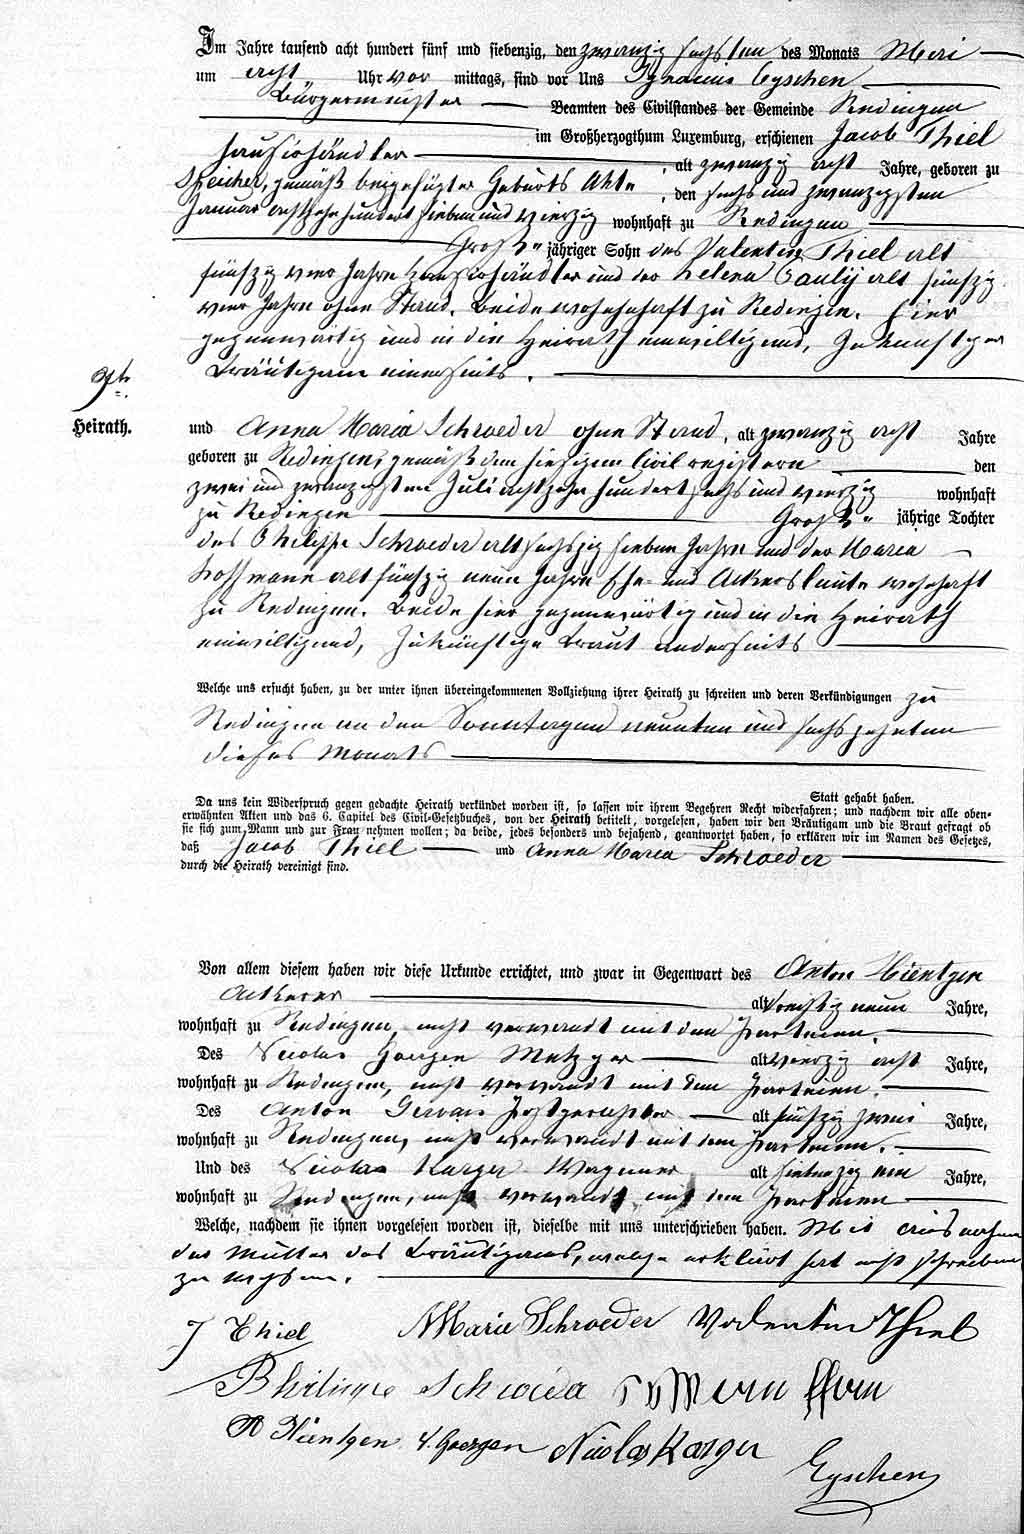 Im Jahre tausend acht hundert fünf und siebenzig, den zwanzig sechsten des Monats Mai
um acht Uhr vor mittags, sind vor Uns Ignacius Eyschen
Bürgermeister Beamten des Civilstandes der Gemeinde Redingen
im Großherzogthum Luxemburg, erschienen Jacob Thiel
Hausirhändler, alt zwanzig acht Jahre, geboren zu
Speicher, gemäß beigefügter Geburts Akte, den sechs und zwanzigsten
Januar achtzehnhundert sieben und vierzig wohnhaft zu Redingen
Groß- jähriger Sohn des Valentin Thiel alt
fünfzig vier Jahre Hausirhändler und der Helena Pauly alt fünfzig
vier Jahre ohne Stand. Beide wohnhaft zu Redingen. hier
gegenwärtig und in die Heirath einwilligend, Zukünftiger
Bräutigam einerseits.
9te
Heirath.
und Anna Maria Schroeder ohne Stand, alt zwanzig acht Jahre
geboren zu Redingen, gemäß den hiesigen Civilregistern den
zwei und zwanzigsten Juli achtzehn hundert sechs und vierzig wohnhaft
zu Redingen Groß- jährige Tochter
des Philipp Schroeder alt sechszig sieben Jahre und der Maria
Hoffmann alt fünfzig neun Jahre Ehe- und Ackersleute wohnhaft
zu Redingen. Beide hier gegenwärtig und in die Heirath
einwilligend, Zukünftige Braut anderseits
Welche uns ersucht haben, zu der unter ihnen übereingekommenen Vollziehung ihrer Heirath zu schreiten und deren Verkündigungen zu
Redingen an den Sonntagen neunten und sechszehnten
dieses Monats
Statt gehabt haben.
Da uns kein Widerspruch gegen gedachte Heirath verkündet worden ist, so lassen wir ihrem Begehren Recht widerfahren; und nachdem wir alle oben-
erwähnten Akten und das 6. Capitel des Civil-Gesetzbuches, von der Heirath betitelt, vorgelesen, haben wir den Bräutigam und die Braut gefragt ob
sie sich zum Mann und zur Frau nehmen wollen; da beide, jedes besonders und bejahend, geantwortet haben, so erklären wir im Namen des Gesetzes,
daß Jacob Thiel und Anna Maria Schroeder
durch die Heirath vereinigt sind.
Von allem diesem haben wir diese Urkunde errichtet, und zwar in Gegenwart des Anton Hientgen
Ackerer alt dreißig neun Jahre,
wohnhaft zu Redingen, nicht verwandt mit den Parteien.
Des Nicolas Goergen Metzger alt vierzig acht Jahre,
wohnhaft zu Redingen, nicht verwandt mit den Parteien.
Des Anton Gervais alt fünfzig zwei Jahre,
wohnhaft zu Redingen, nicht verwandt mit den Parteien.
Und des Nicolas Karger Wagener alt siebenzig ein Jahre,
wohnhaft zu Redingen, nicht verwandt mit den Parteien
Welche, nachdem sie ihnen vorgelesen worden ist, dieselbe mit uns unterschrieben haben. Mit Ausnahme
der Mutter des Bräutigams, welche erklärt hat nicht schreiben
zu können.
J Thiel AMarie Schroeder Valentin Thiel
Philippe Schroeder
A Hientgen N. Goergen Nicolas Karger
Eyschen